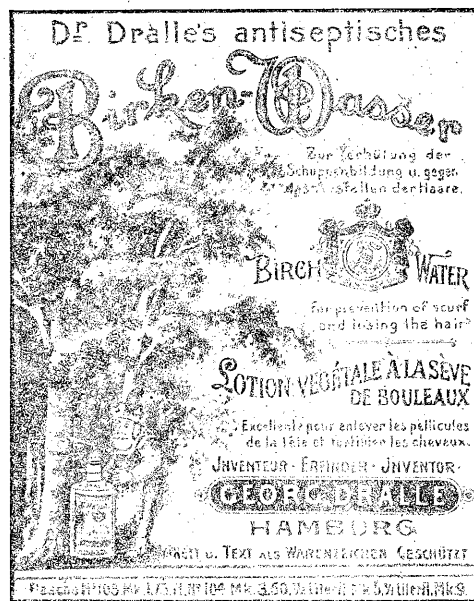 Dr Dralle's antiseptisches
Birken-Wasser
Zur Verhütung der
Schuppenbildung u. gegen
das Ausfallen der Haare.
BIRCH WATER
for prevention of scurf
and losing the hair
LOTION VEGÉTALE À LA SÈVE
DE BOULEAUX
Excellente pour enlever les pellicules
de la tête et fortifier les cheveux.
INVENTEUR - ERFINDER - INVENTOR
GEORG DRALLE
HAMBURG
u. TEXT ALS WARENZEICHEN GESCHÜTZT